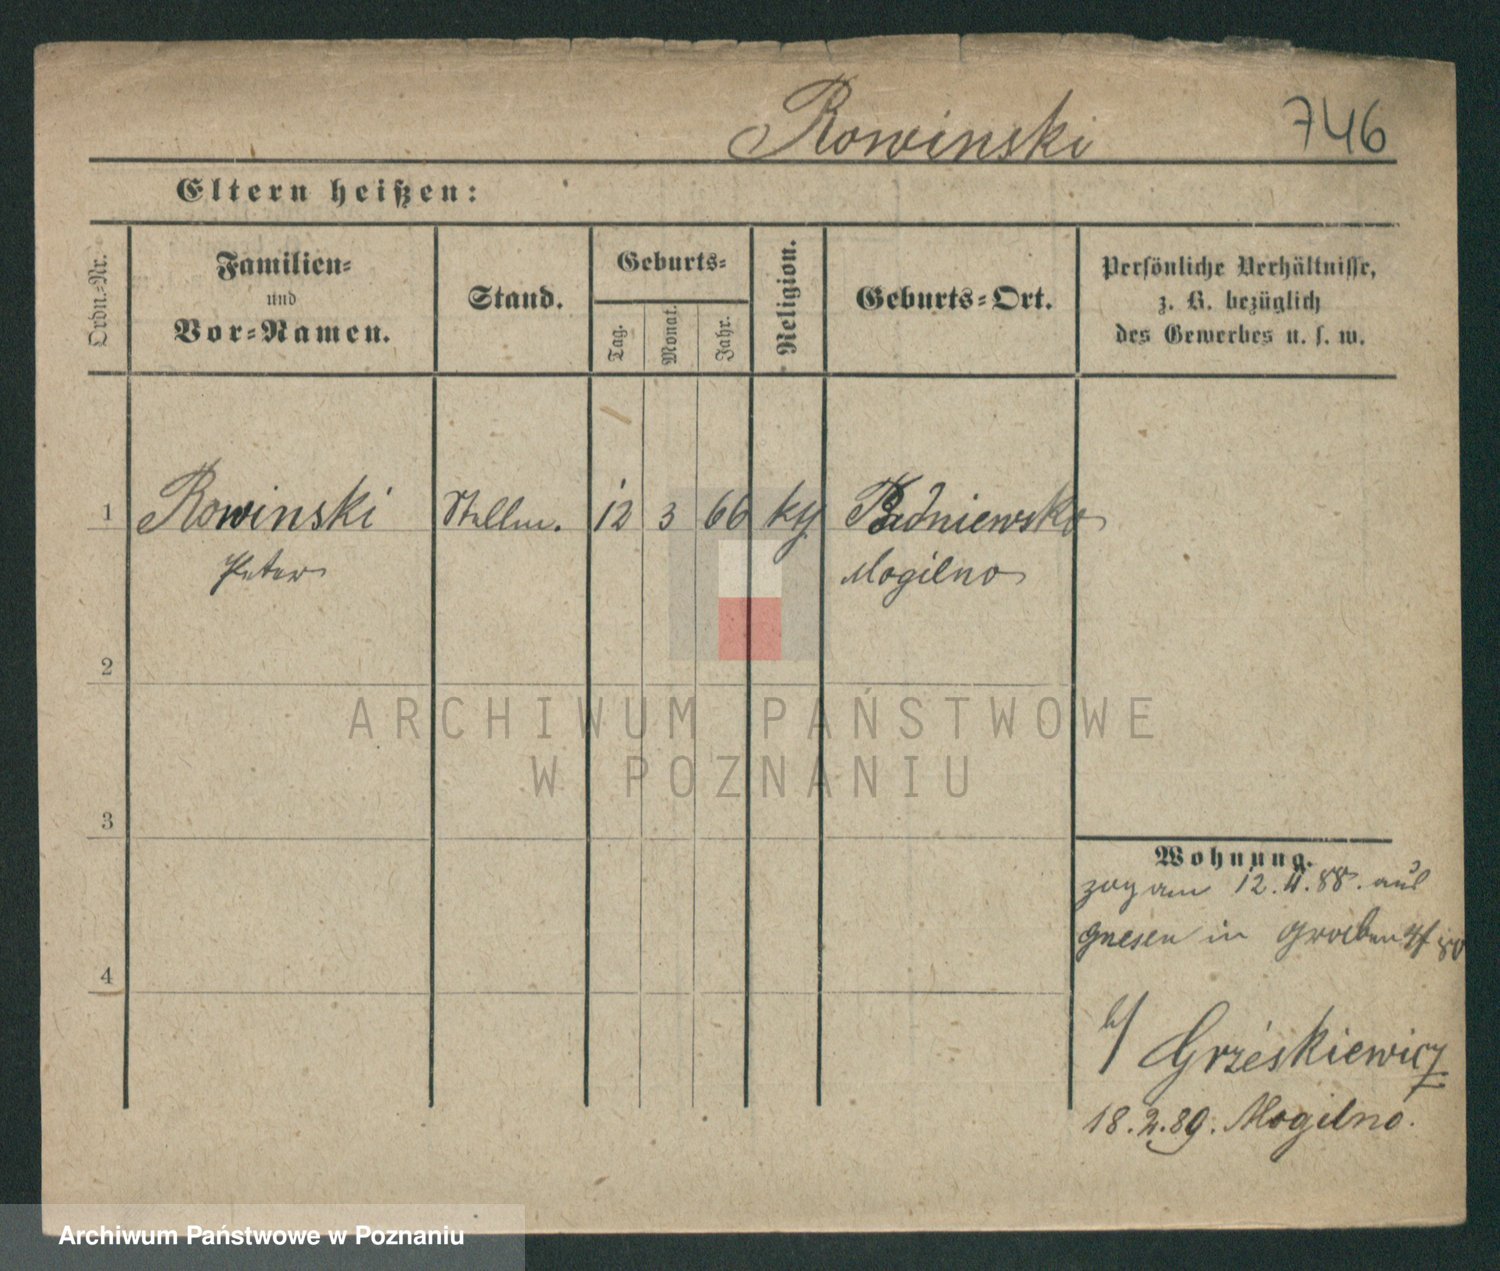 Rowinski
746
Eltern heißen:
Ordn.-Nr.
Familien-
und
Vor-Namen.
Stand.
Geburts-
Tag.
Monat.
Jahr.
Religion.
Geburts-Ort.
Persönliche Verhältnisse,
z. B. bezüglich
des Gewerbes u. s. w.
1 Rowinski Stellm. 12 3 66 Padniewsko
Peter Mogilno
2
3
4
Wohnung.
zog am 12.4.88. aus
Gnesen in
b/ Grześkiewicz
18.2.89. Mogilno.
ARCHIWUM PAŃSTWOWE
W POZNANIU
Archiwum Państwowe w Poznaniu